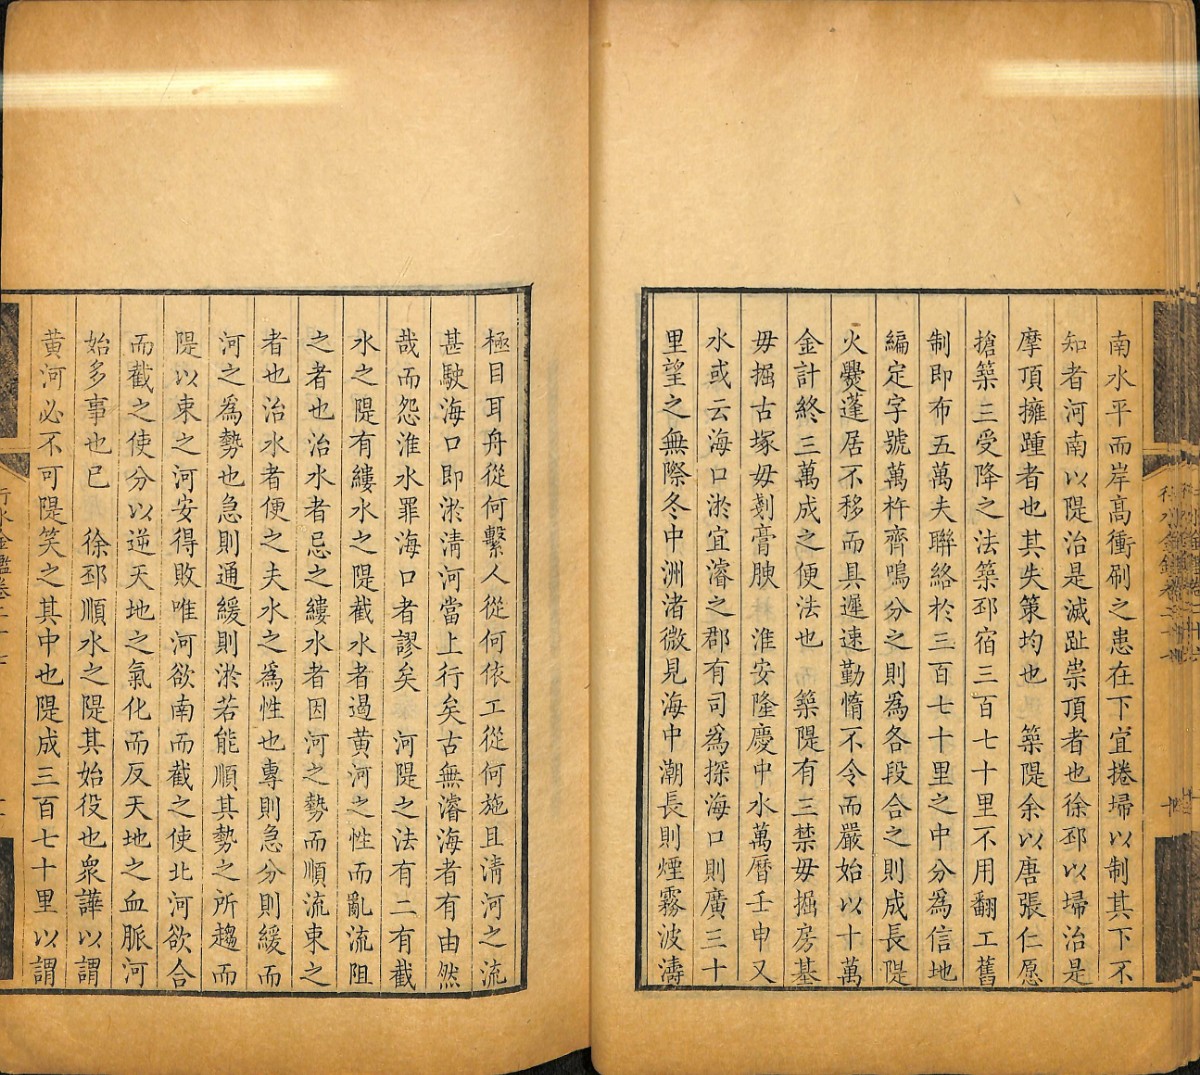 南水平而岸高衝刷之患在下宜捲埽以制其下不
知者河南以隄治是滅趾崇頂者也徐邳以埽治是
摩頂擁踵者也其失策均也　築隄余以唐張仁愿
搶築三受降之法築邳宿三百七十里不用翻工舊
制即布五萬夫聯絡於三百七十里之中分為信地
編定字號萬杵齊鳴分之則為各段合之則成長隄
火爨蓬居不移而具遲速勤惰不令而嚴始以十萬
金計終三萬成之便法也　築隄有三禁毋掘房基
毋掘古塚毋剗膏腴　淮安隆慶中水萬曆壬申又
水或云海口淤宜濬之郡有司為探海口則廣三十
里望之無際冬中洲渚微見海中潮長則煙霧波濤
極目耳舟從何繫人從何依工從何施且淸河之流
甚駛海口即淤淸河當上行矣古無濬海者有由然
哉而怨淮水罪海口者謬矣　河隄之法有二有截
水之隄有縷水之隄截水者遏黃河之性而亂流阻
之者也治水者忌之縷水者因河之勢而順流束之
者也治水者便之夫水之為性也專則急分則緩而
河之為勢也急則通緩則淤若能順其勢之所趨而
隄以束之河安得敗唯河欲南而截之使北河欲合
而截之使分以逆天地之氣化而反天地之血脈河
始多事也已　徐邳順水之隄其始役也衆譁以謂
黃河必不可隄笑之其中也隄成三百七十里以謂
行水金鑑卷二十七